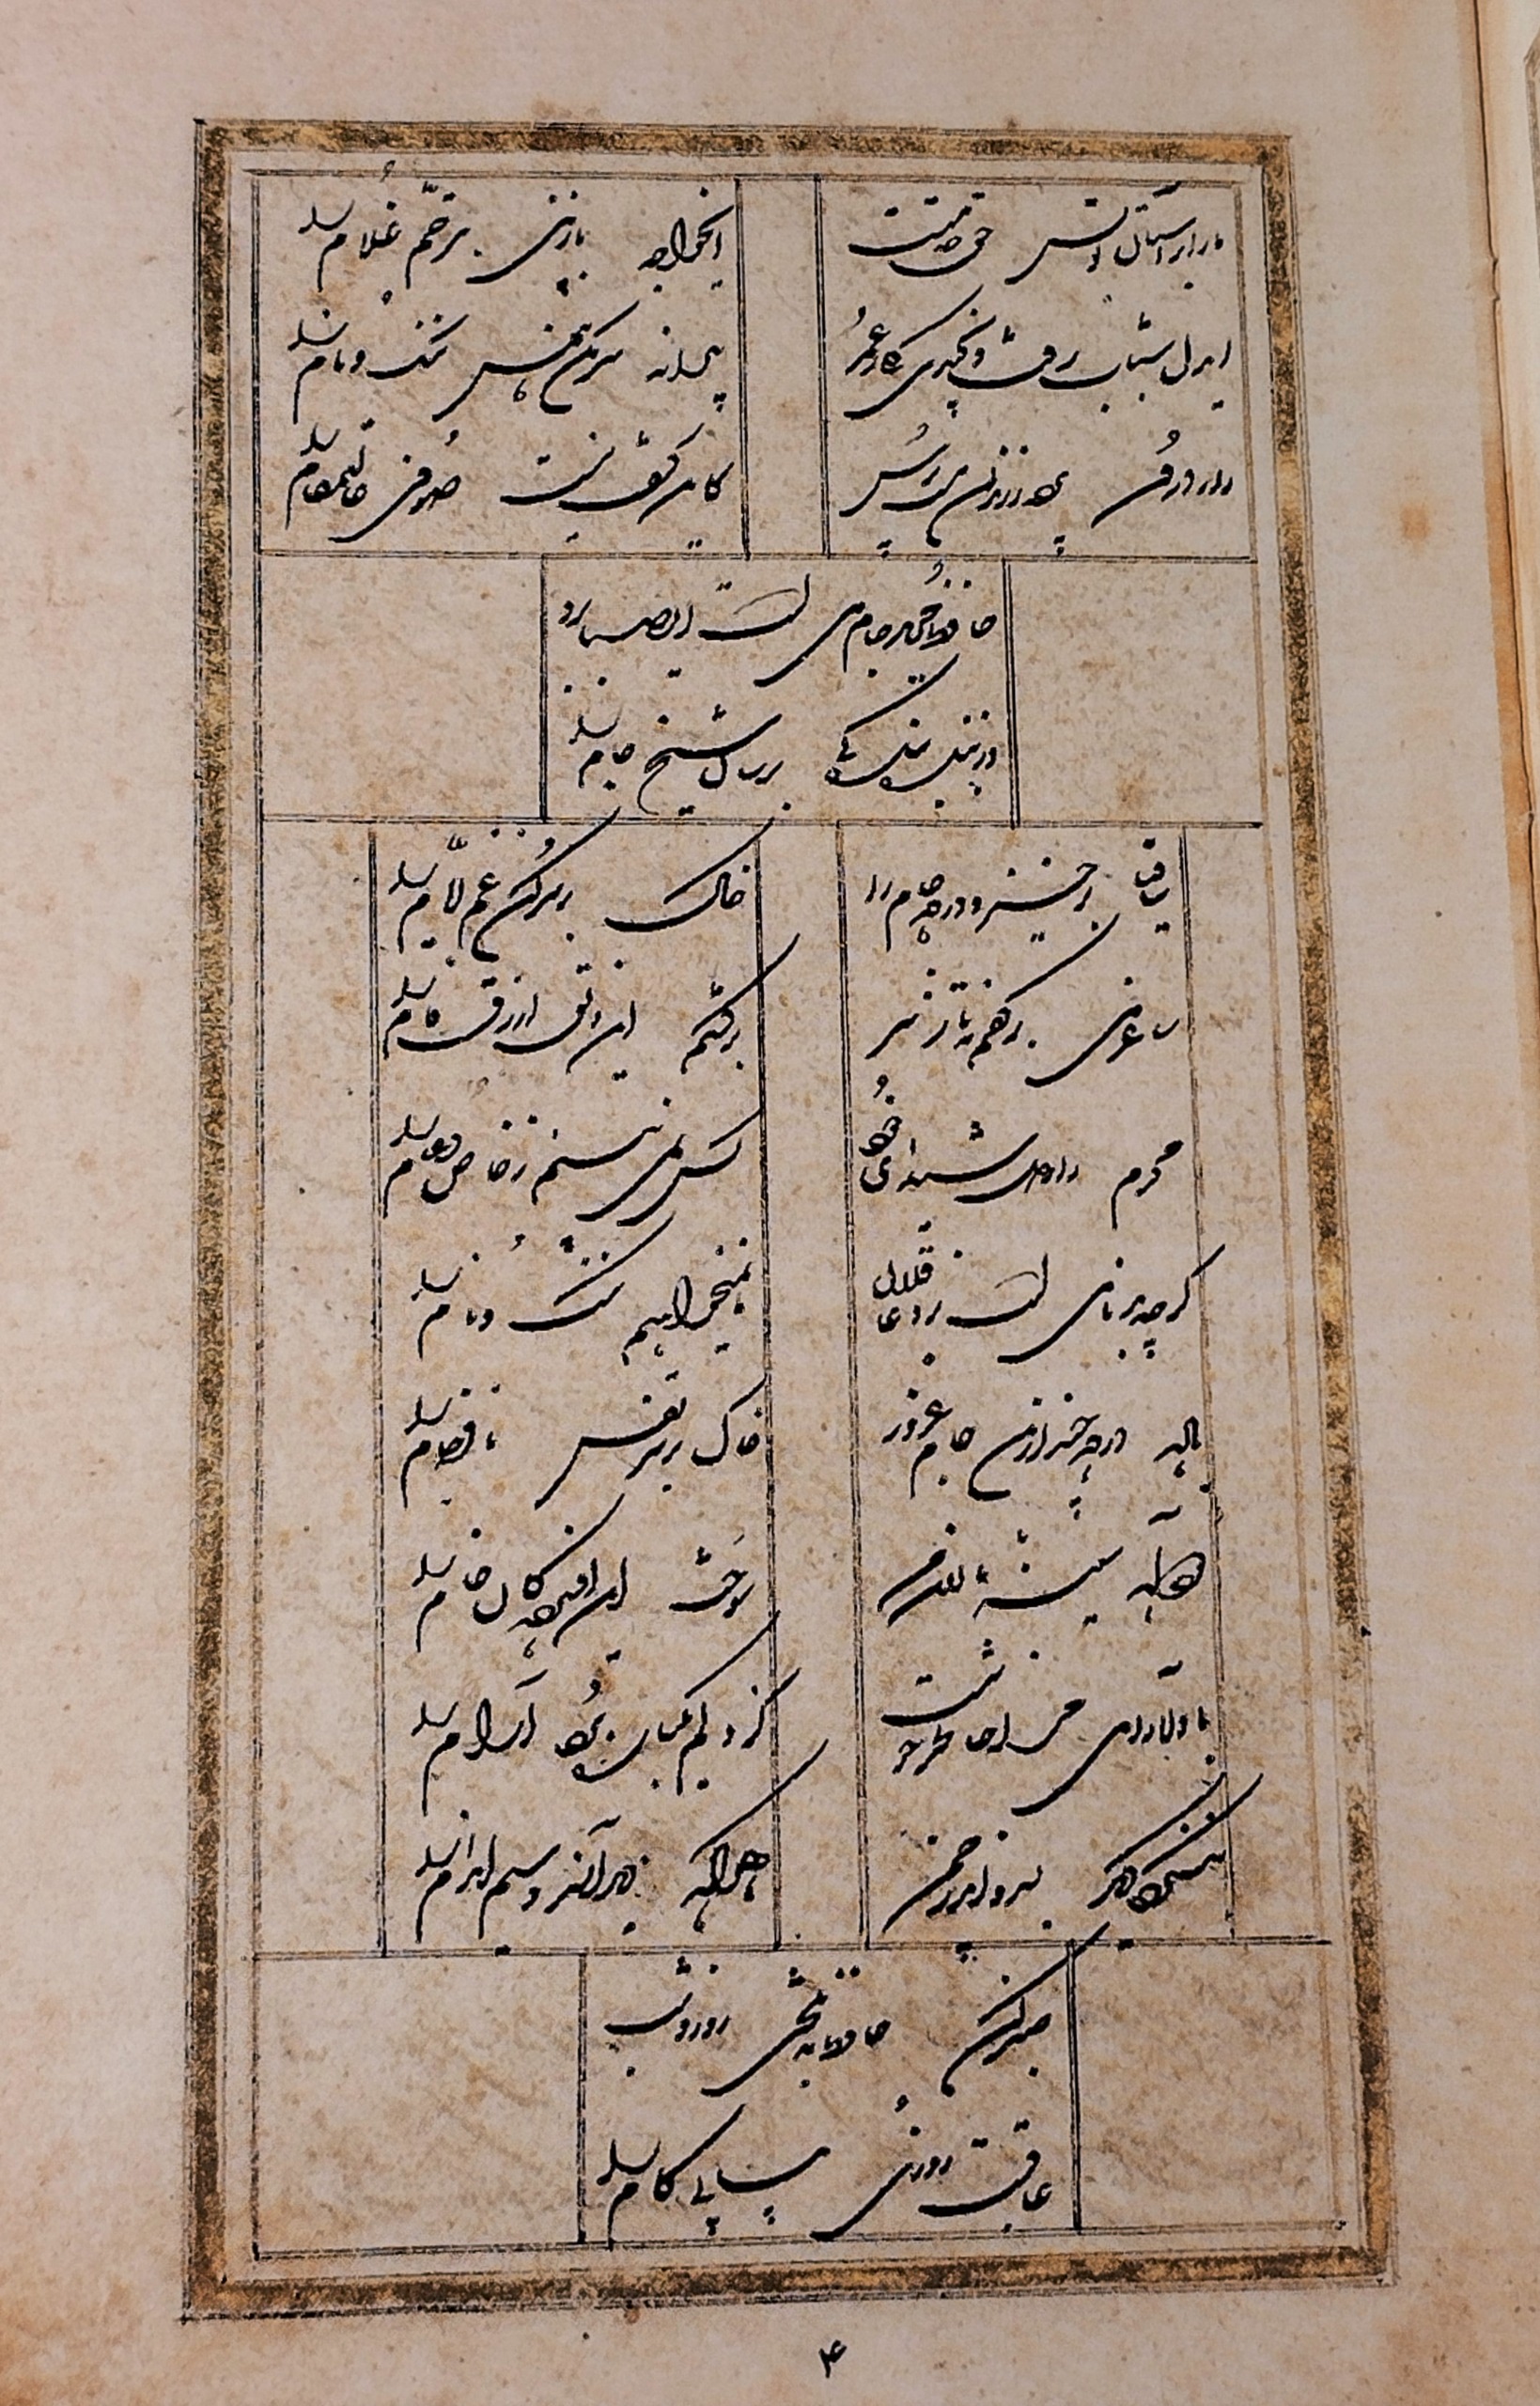 ما را بر آستان تو بس حق خدمتست
ایخواجه بازبین بترحم غلام را
ایدل شباب رفت و نچیدی گلی ز عمر
پیرانه سر مکن هنری ننگ و نام را
راز درون پرده ز رندان مست پرس
کاین کشف نیست صوفی عالیمقام را
حافظ مرید جام می است ایصبا برو
وز بنده بندگی برسان شیخ جام را
ساقیا برخیز و درده جام را
خاک بر سر کن غم ایام را
ساغر می بر کفم نه تا ز سر
برکشم این دلق ازرق فام را
محرم راز دل شیدای خود
کس نمی بینم ز خاص و عام را
گرچه بدنامی است نزد عاقلان
ما نمیخواهیم ننگ و نام را
باده درده چند ازین جام غرور
خاک بر سر نفس نافرجام را
دود آه سینه نالان من
سوخت این افسردگان خام را
با دلارامی مرا خاطر خوشست
کز دلم یکباره برد آرام را
ننگرد دیگر بسرو اندر چمن
هر که دید آن سرو سیم اندام را
صبر کن حافظ بسختی روز و شب
عاقبت روزی بیابی کام را
۴